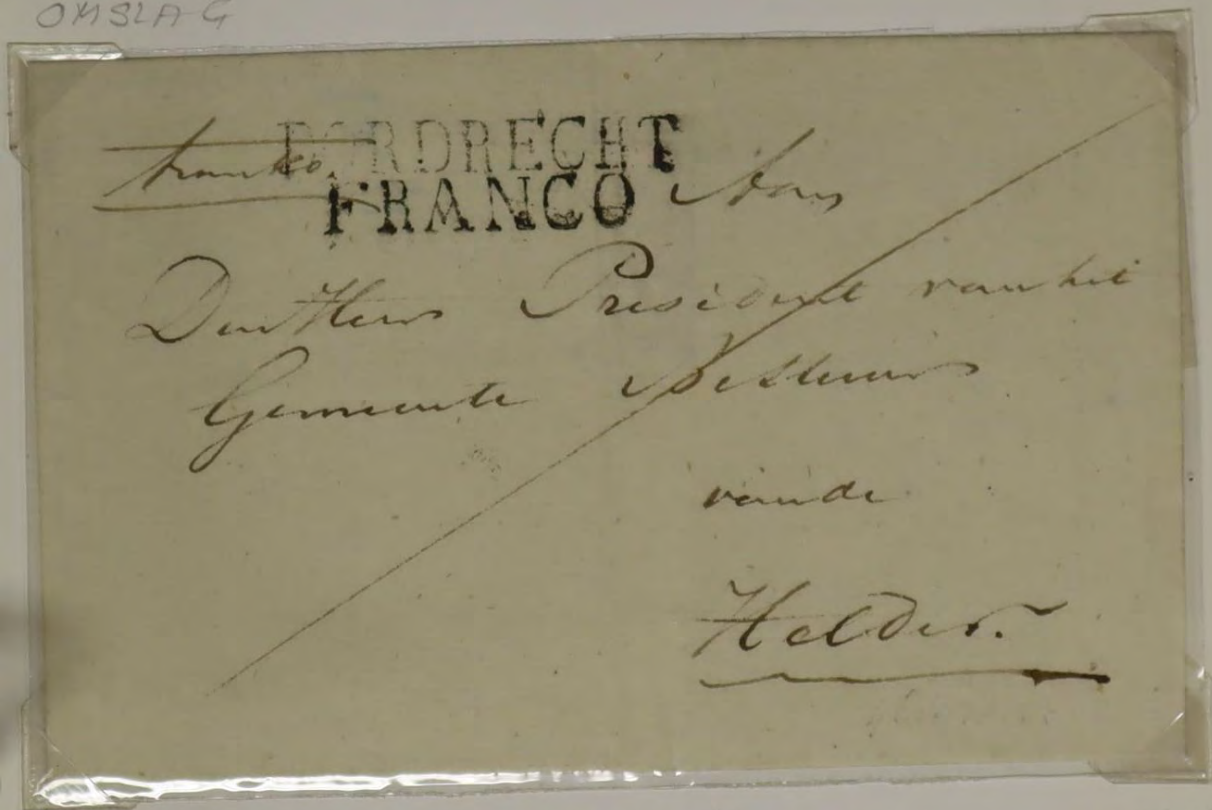 OMSLAG
franko. DORDRECHT
FRANCO Aan
Den Heer President van het
Gemeente Bestuur
van de
Helder.